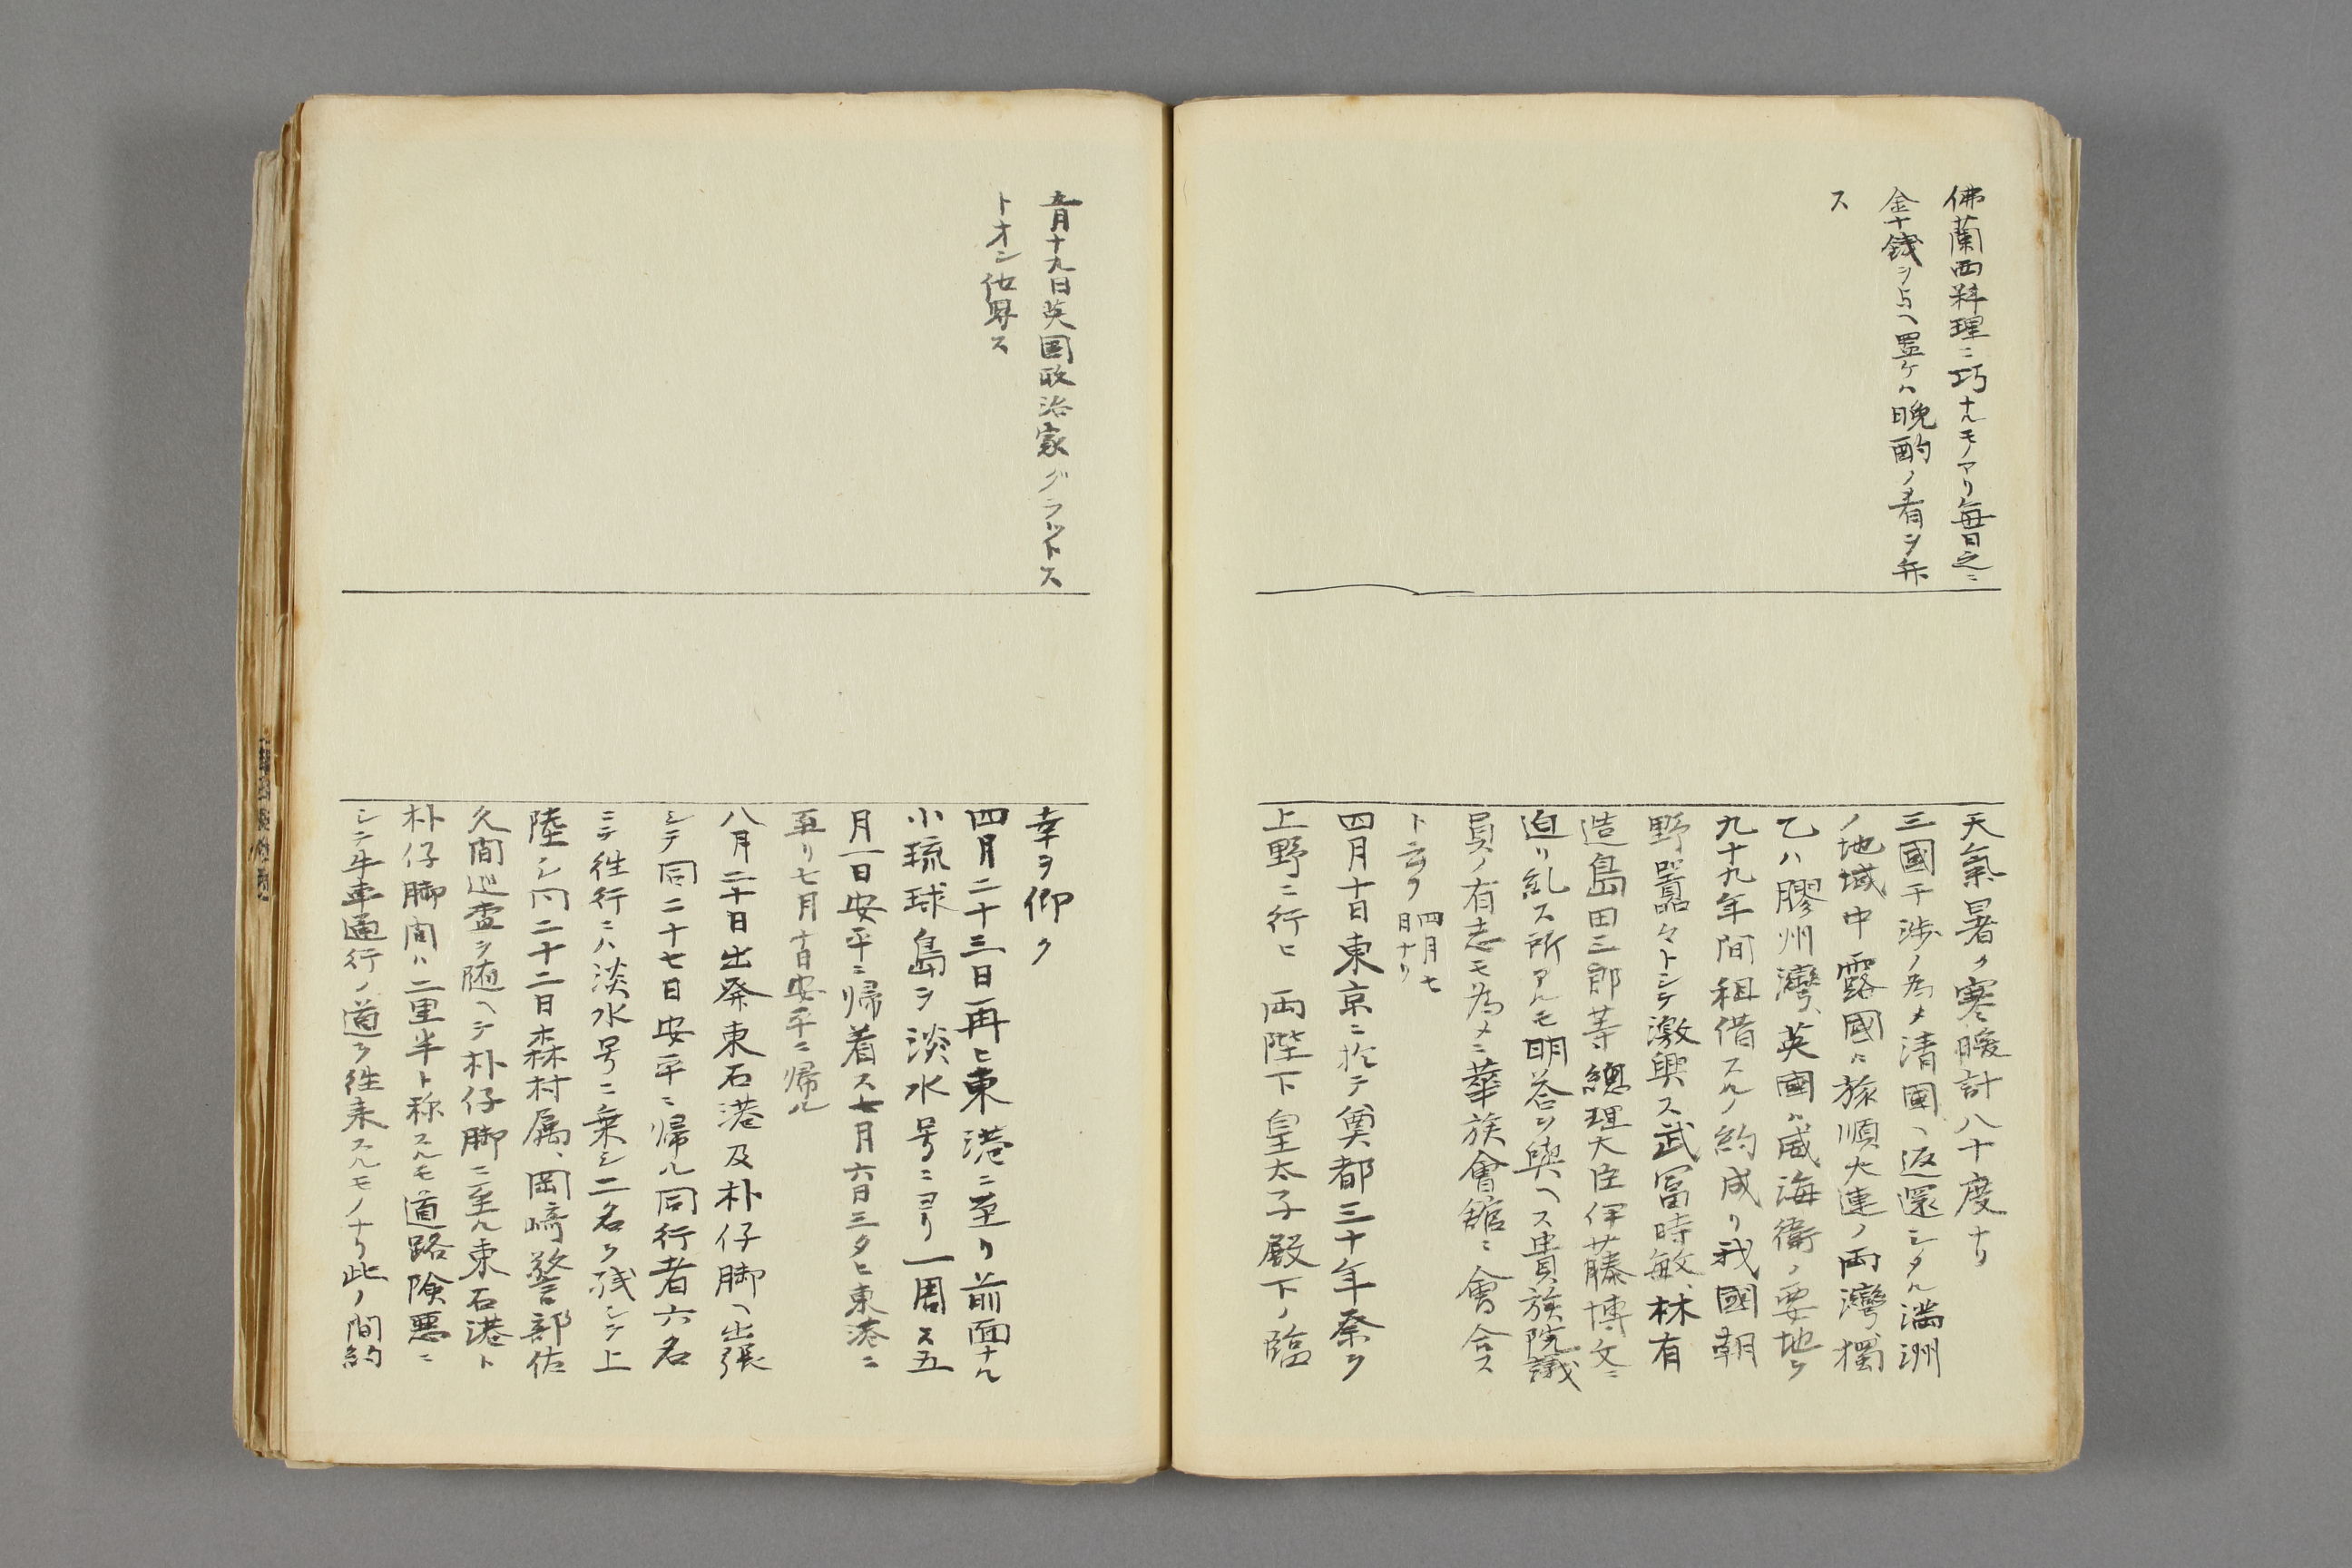 佛蘭西料理ニ巧ナルモノアリ毎日之ニ
金十銭ヲ与ヘ置ケハ晩酌ノ肴ヲ弁
ス
天氣暑ク寒暖計八十度ナリ
三國干渉ノ為メ清國ヘ返還シタル満洲
ノ地域中露國ハ旅順大連ノ両灣獨
乙ハ膠州灣、英國ハ威海衛ノ要地ヲ
九十九年間租借スルノ約成リ我國朝
野囂々トシテ激興ス武冨時敏、林有
造島田三郎等總理大臣伊藤博文ニ
迫リ糺ス所アルモ明答ヲ與ヘス貴族院議
員ノ有志モ為メニ華族會館ニ會合ス
ト云フ 四月七
日ナリ
四月十日東京ニ於テ奠都三十年祭ヲ
上野ニ行ヒ 両陛下皇太子殿下ノ臨
五月十九日英国政治家グラットス
トオン他界ス
幸ヲ仰ク
四月二十三日再ヒ東港ニ至リ前面ナル
小琉球島ヲ淡水号ニヨリ一周ス五
月一日安平ニ帰着ス七月六日三タヒ東港ニ
至リ七月十日安平ニ帰ル
八月二十日出発東石港及朴仔脚ヘ出張
シテ同二十七日安平ニ帰ル同行者六名
ニテ往行ニハ淡水号ニ乗シ二名ヲ残シテ上
陸シ内二十二日森村属、岡﨑警部佐
久間巡査ヲ随ヘテ朴仔脚ニ至ル東石港ト
朴仔脚間ハ二里半ト称スルモ道路険悪ニ
シテ牛車通行ノ道ヲ往来スルモノナリ此ノ間約